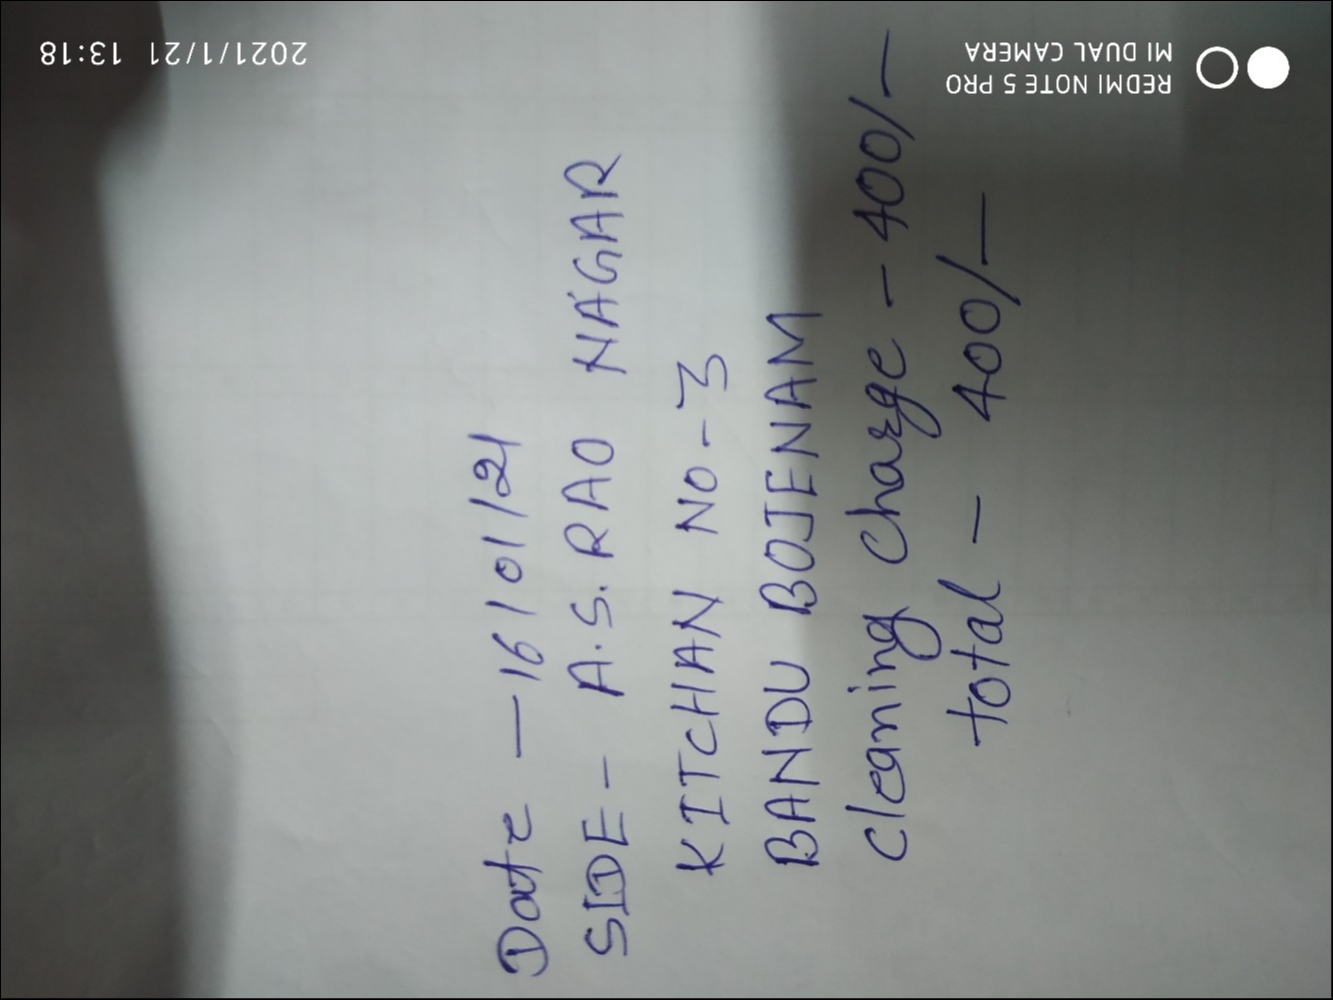 Date - 16/01/21
SIDE - A.S. RAO NAGAR
KITCHAN NO-3
BANDU BOJENAM
cleaning charge - 400/-
total - 400/-
REDMI NOTE 5 PRO
MI DUAL CAMERA
2021/1/21 13:18